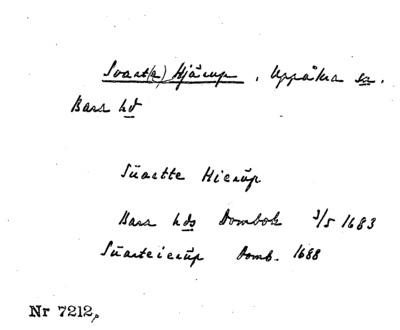 Svart(a) Hjärup, Uppåkra sn.
Bara hd
Süartte Hierüp
Bara hds Dombok 3/5 1683
Süarteierüp Domb. 1688
Nr 7212,